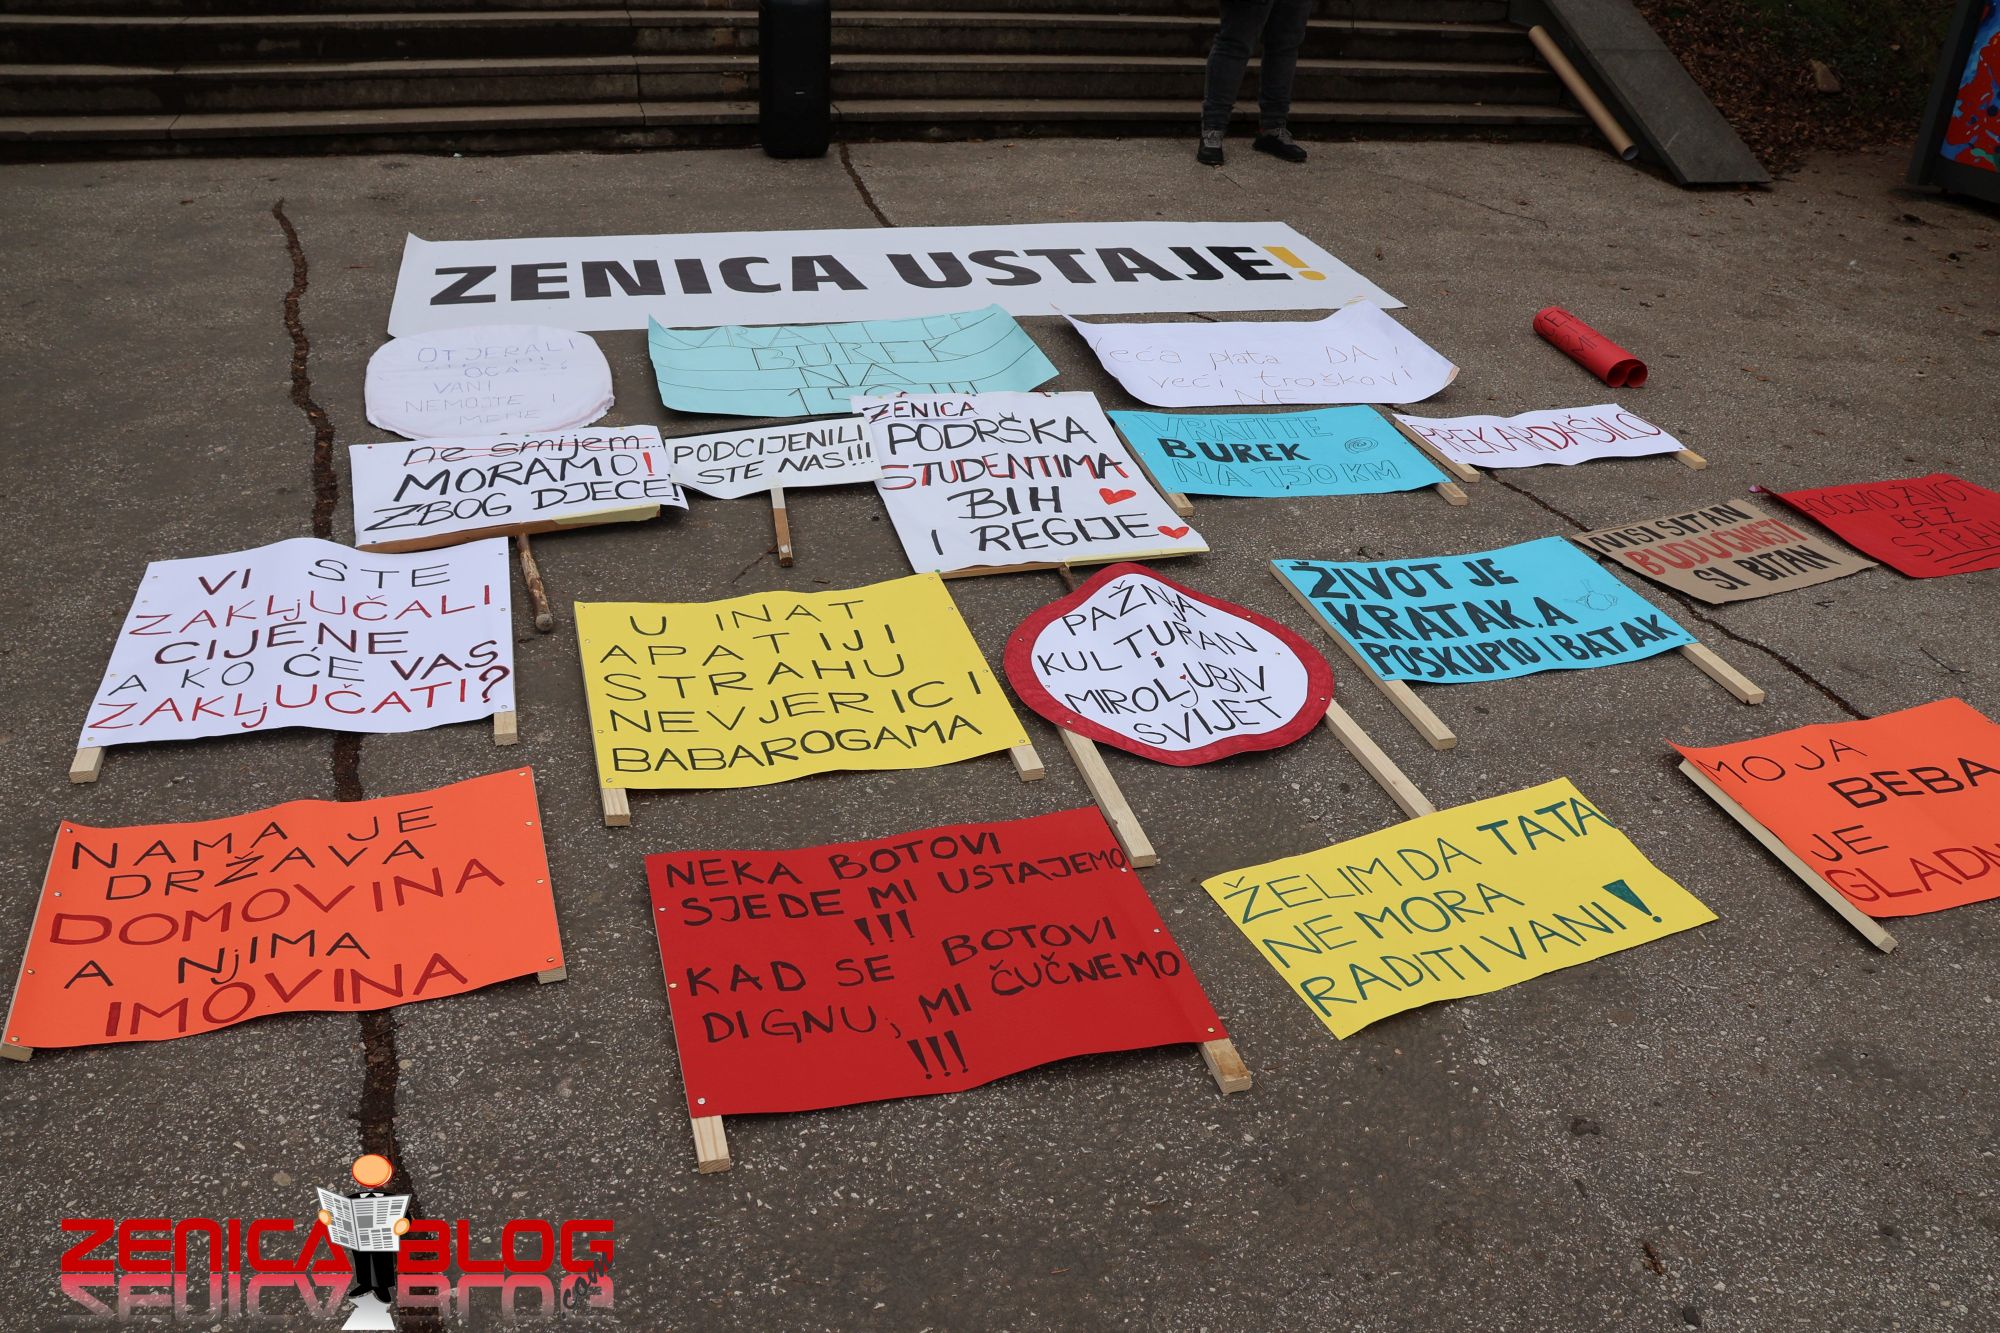 ZENICA USTAJE!
OTJERALI
OCA
VANI
NEMOJTE I
MENE
VRATITE
BUREK
NA
veća plata DA!
veći troškovi
NE
ne smijem...
MORAMO!
ZBOG DJECE!
PODCIJENILI
STE NAS!!!
ZENICA
PODRŠKA
STUDENTIMA
BIH
I REGIJE
VRATITE
BUREK
NA 1,50 KM
PREKARDAŠILO
NISI SITAN
BUDUĆNOSTI
SI BITAN
HOĆEMO ŽIVOT
BEZ
VI STE
ZAKLJUČALI
CIJENE
A KO ĆE VAS
ZAKLJUČATI?
U INAT
APATIJI
STRAHU
NEVJERICI
BABAROGAMA
PAŽNJA
KULTURAN
i
MIROLJUBIV
SVIJET
ŽIVOT JE
KRATAK, A
POSKUPIO I BATAK
NAMA JE
DRŽAVA
DOMOVINA
A NJIMA
IMOVINA
NEKA BOTOVI
SJEDE MI USTAJEMO
!!!
KAD SE BOTOVI
DIGNU, MI ČUČNEMO
!!!
ŽELIM DA TATA
NE MORA
RADITI VANI!
MOJA
BEBA
JE
ZENICA BLOG
.com